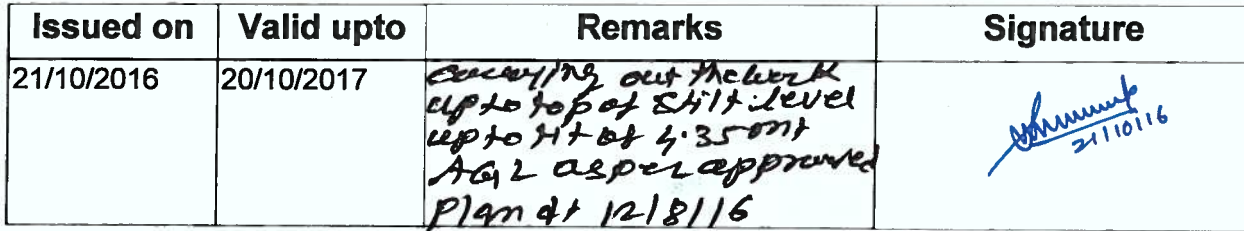 Issued on Valid upto Remarks Signature
21/10/2016 20/10/2017 carrying out the work
upto top of stilt level
upto Ht of 4.350mt
AGL as per approved
plan dt 12/8/16
21/10/16